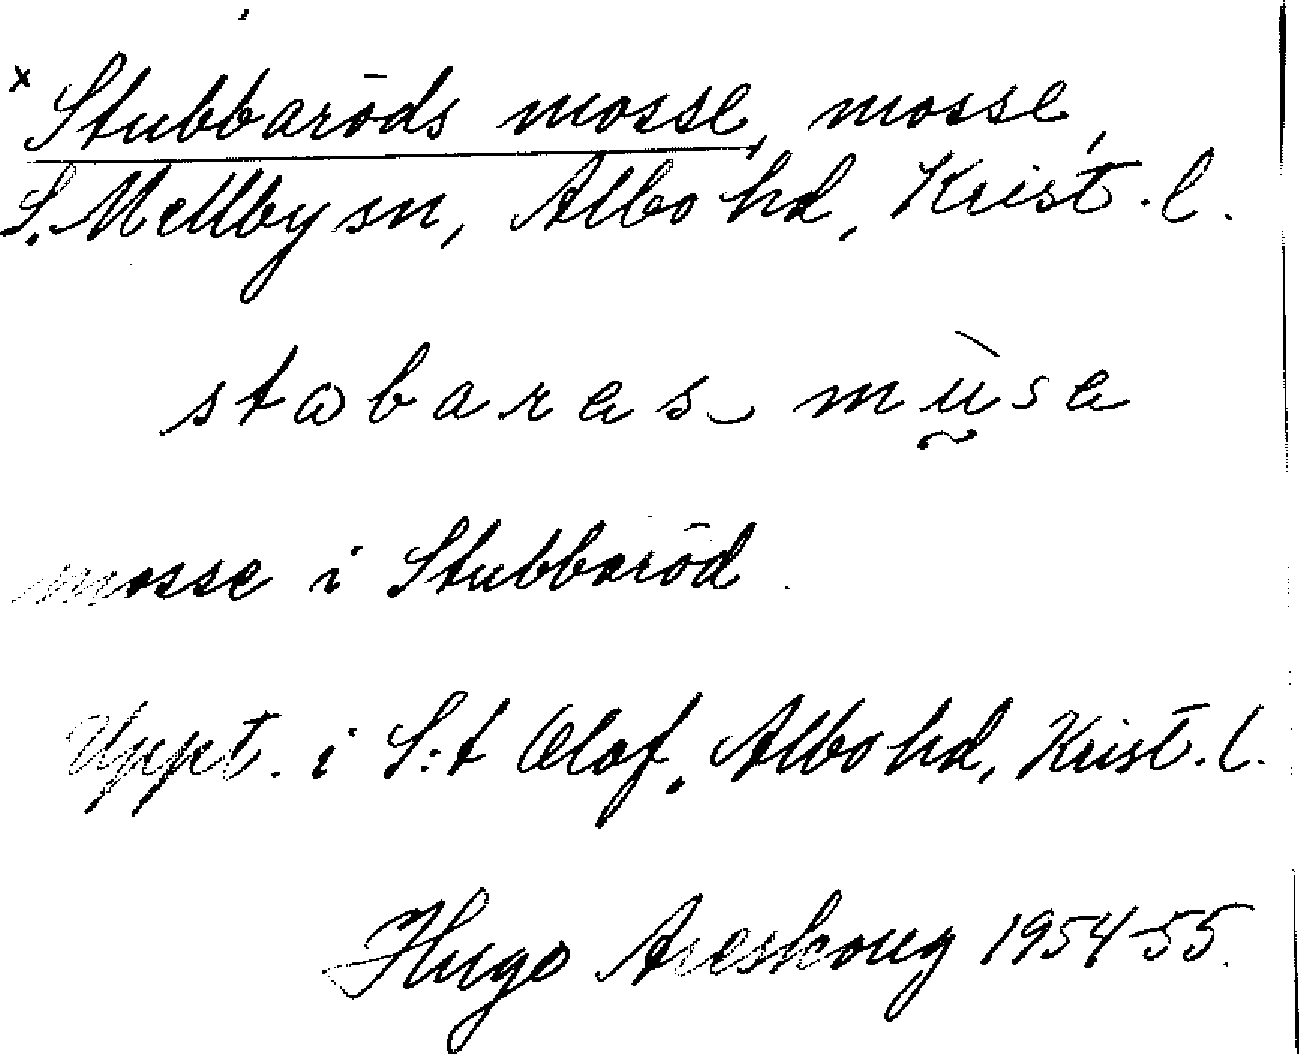 x Stubbaröds mosse, mosse,
S. Mellby sn, Albo hd, Krist. l.
stabaras musa
mosse i Stubbaröd.
Uppt. i S:t Olof, Albo hd, Krist. l.
Hugo Areskoug 1954-55.